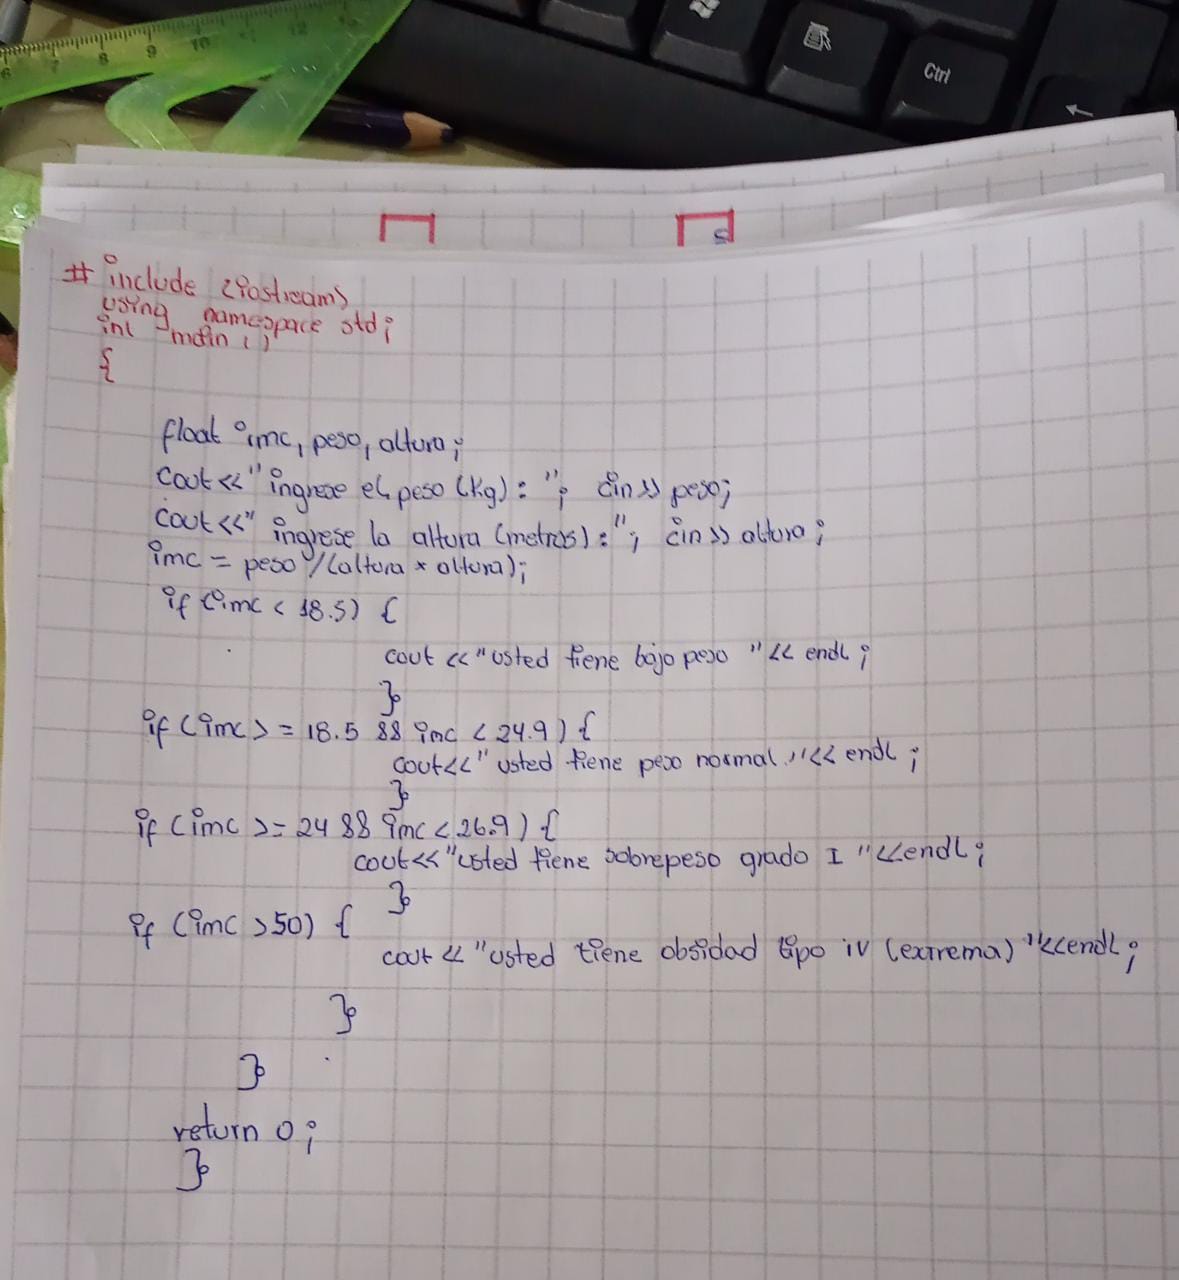 6 7 8 9 10 11 12
Ctrl
# include <iostream>
using namespace std;
int main ()
{
float imc, peso, altura;
cout << " ingrese el peso (kg) : "; cin >> peso;
cout << " ingrese la altura (metros) : "; cin >> altura;
imc = peso / (altura * altura);
if (imc < 18.5) {
cout << "usted tiene bajo peso " << endl ;
}
if (imc >= 18.5 && imc < 24.9) {
cout << " usted tiene peso normal " << endl ;
}
if (imc >= 24 && imc < 26.9) {
cout << "usted tiene sobrepeso grado I " << endl ;
}
if (imc > 50) {
cout << "usted tiene obsidad tipo iv (extrema) " << endl ;
}
}
return 0 ;
}